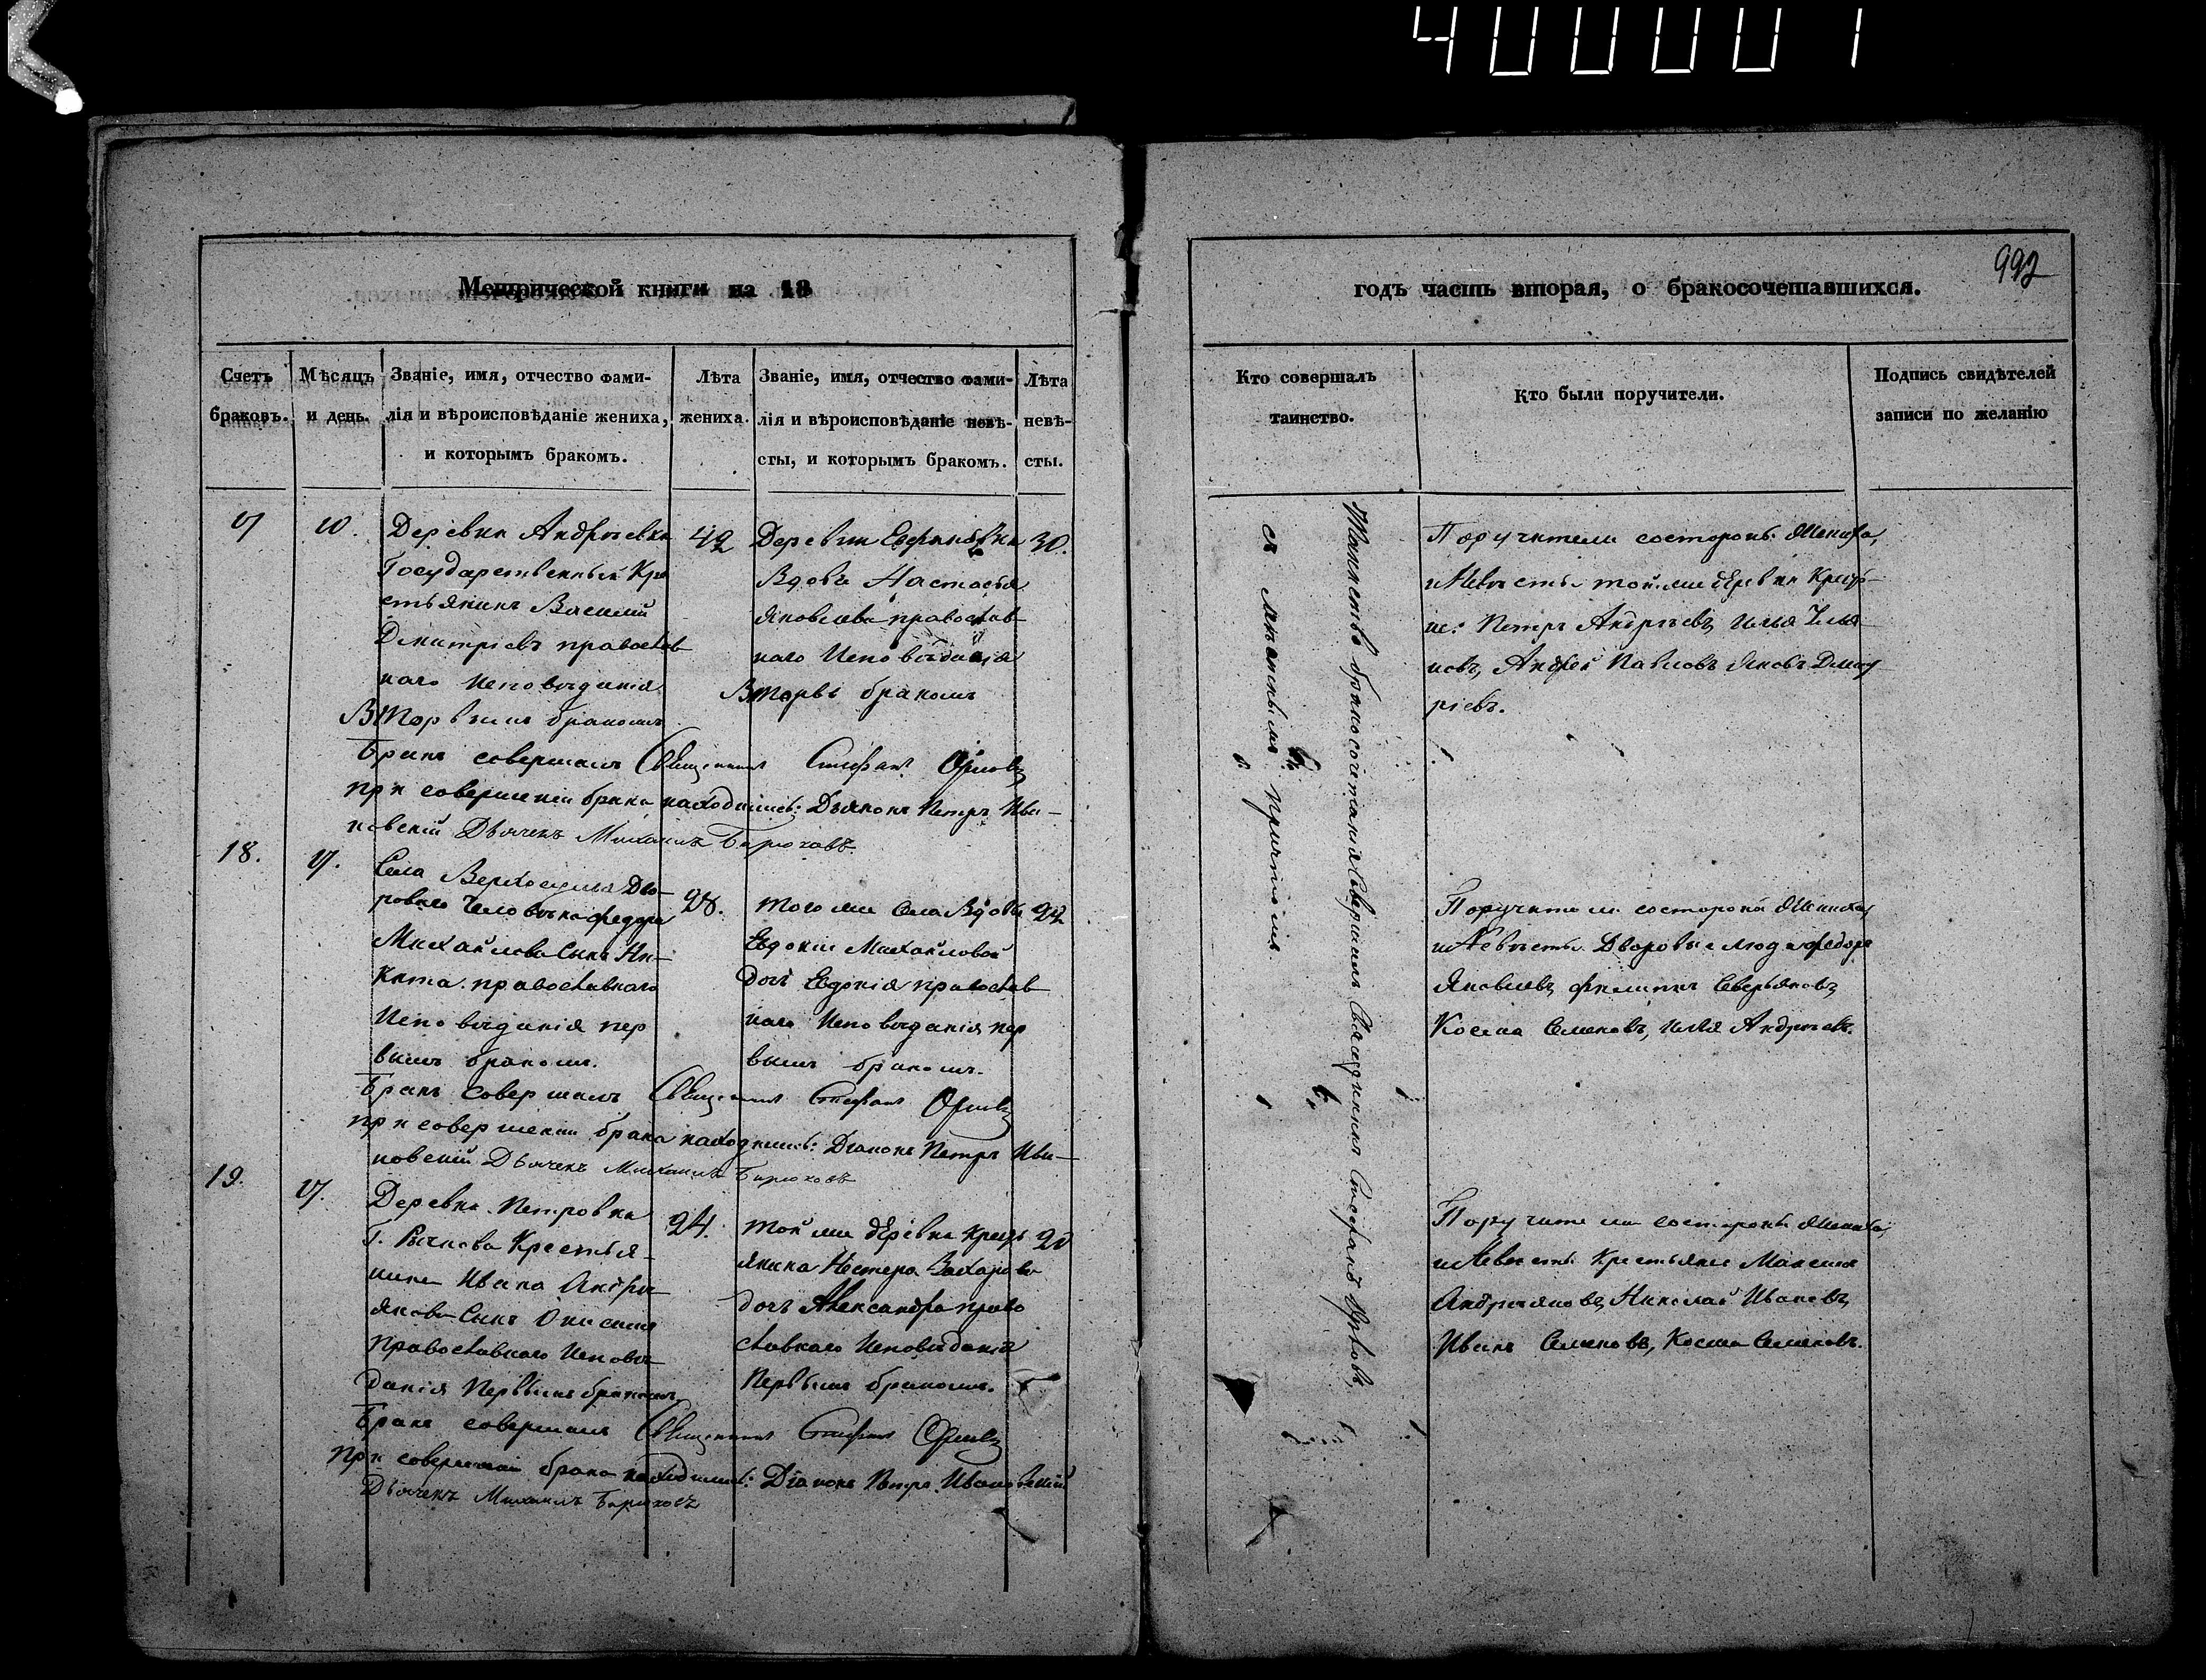 400001
992
Метрической книги на 18
годъ часть вторая, о бракосочетавшихся.
Счетъ браковъ.
Мѣсяцъ и день.
Званіе, имя, отчество фами-
лія и вѣроисповѣданіе жениха,
и которымъ бракомъ.
Лѣта
жениха.
Званіе, имя, отчество фами-
лія и вѣроисповѣданіе невѣ-
сты, и которымъ бракомъ.
Лѣта
невѣ-
сты.
Кто совершалъ
таинство.
Кто были поручители.
Подпись свидѣтелей
записи по желанію
Деревни Андреевки
Государственный Кре
стьянинъ Василий
Димитріевъ православ
наго Исповѣданія
Вторымъ бракомъ
42
Деревни
Вдова Настасья
Яковлева православ
наго Исповѣданія
Вторы бракомъ
30.
Бракъ совершалъ Священникъ Стефанъ Орловъ
при совершеніи брака находились: Дьяконъ Петръ Ива-
новскій Дьячекъ Михаилъ Бирюковъ.
18.
Села Дво-
роваго Человѣка Федора
Михайлова Сынъ Ни-
кита православнаго
Исповѣданія пер
вымъ бракомъ.
28.
Того же Села Вдовы
Евдокіи Михайловой
дочь Евдокія православ
наго Исповѣданія пер
вымъ бракомъ.
22
Бракъ совершалъ Священникъ Стефанъ Орловъ
при совершеніи брака находились: Діаконъ Петръ Ива-
новскій Дьячекъ Михаилъ Бирюковъ
19.
Деревни Петровки
Г. Рычкова Крестья-
нина Ивана Андри
янова Сынъ
Православнаго Исповѣ
данія Первымъ бракомъ
24.
той же деревни Кресть
янина Нестера Захарова
дочь Александра право
славнаго Исповѣданія
Первымъ бракомъ.
20
Бракъ совершалъ Священникъ Стефанъ Орловъ
При совершеніи брака находились: Діаконъ Петръ Ивановскій
Дьячекъ Михаилъ Бирюковъ
Таинство бракосочетанія совершалъ Священникъ Стефанъ Орловъ,
съ причтомъ.
Поручители состороны Жениха,
и Невѣсты той же деревни Кресть-
не: Петръ Андреевъ, Илья
новъ, Андрей Павловъ Яковъ Димит
ріевъ.
Поручители состороны Жениха,
и Невѣсты Дворовые люди Федоръ
Яковлевъ, Филиппъ Северьяновъ,
Косма Семеновъ, Илья Андреевъ.
Поручители состороны Жениха,
и Невѣсты Крестьяне Максимъ
Андрияновъ, Николай Ивановъ,
Иванъ Семеновъ, Косма Семеновъ.